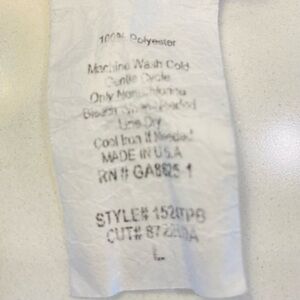 100% Polyester
Machine Wash Cold
Gentle Cycle
Only Non-Chlorine
Bleach When Needed
Line Dry
Cool Iron If Needed
MADE IN U.S.A
RN #
STYLE#
CUT#
L